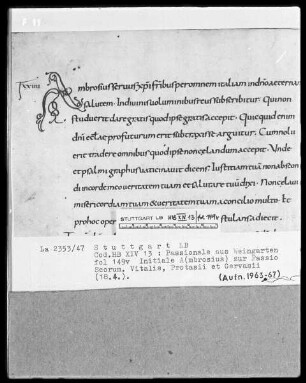 F 11
XXIIII
Ambrosius seruus xpi fribus per omnem italiam in dno aeternam
salutem. In diuinis uoluminibus retus subscribitur. Qui non
studuerit dare gratis quod ipse gratis accepit. Quicquid enim
dni eccłae profuturum erit subtraxisse arguitur. Cum nolu
erit tradere omnibus quod ipse non celandum accepit. Unde
et psalmigraphus uaticinatur dicens. Iustitiam tuam non abscon
di in corde meo ueritatem tuam et salutare tuum dixi. Non celaui
misericordiam tuam & ueritatem tuam a concilio multo. Et
pro hoc oper
STUTTGART LB HB XIV 13 fol. 149v
La 2353/47 Stuttgart LB
Cod.HB XIV 13 : Passionale aus Weingarten
fol 149v Initiale A(mbrosius) zur Passio
Scorum. Vitalis, Protasii et Gervasii
(18.4.). (Aufn.1963-67)